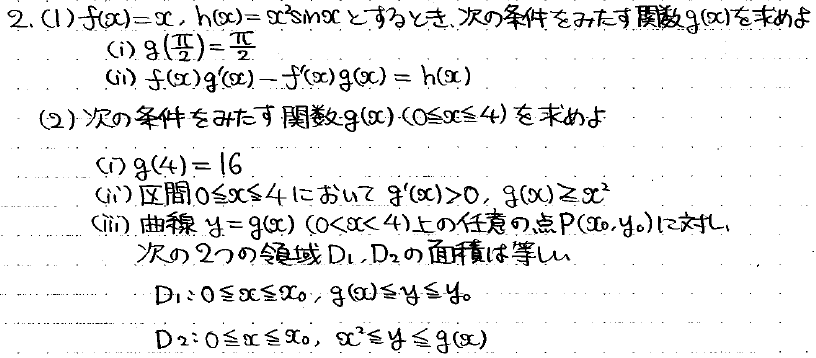 2. (1) f(x)=x, h(x)=x²sinxとするとき、次の条件をみたす関数g(x)を求めよ
(i) g(π/2)=π/2
(ii) f(x)g'(x)-f'(x)g(x)=h(x)
(2) 次の条件をみたす関数g(x) (0≦x≦4)を求めよ
(i) g(4)=16
(ii) 区間0≦x≦4において g'(x)>0, g(x)≧x²
(iii) 曲線 y=g(x) (0<x<4)上の任意の点P(x₀,y₀)に対し、
次の2つの領域D₁, D₂の面積は等しい
D₁: 0≦x≦x₀, g(x)≦y≦y₀
D₂: 0≦x≦x₀, x²≦y≦g(x)